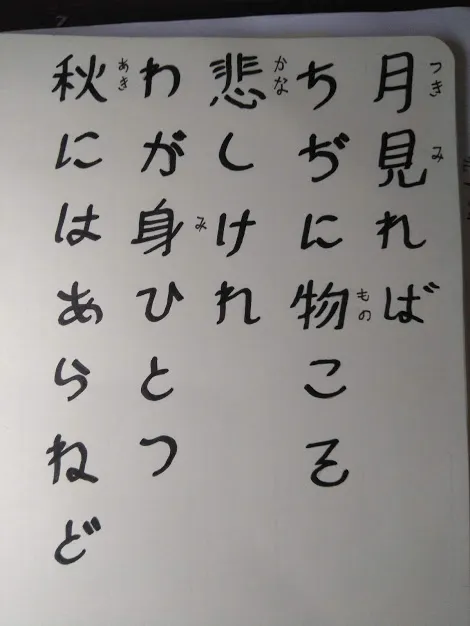 月見れば
つき
み
ちぢに物こそ
もの
悲しけれ
かな
わが身ひとつ
み
秋にはあらねど
あき